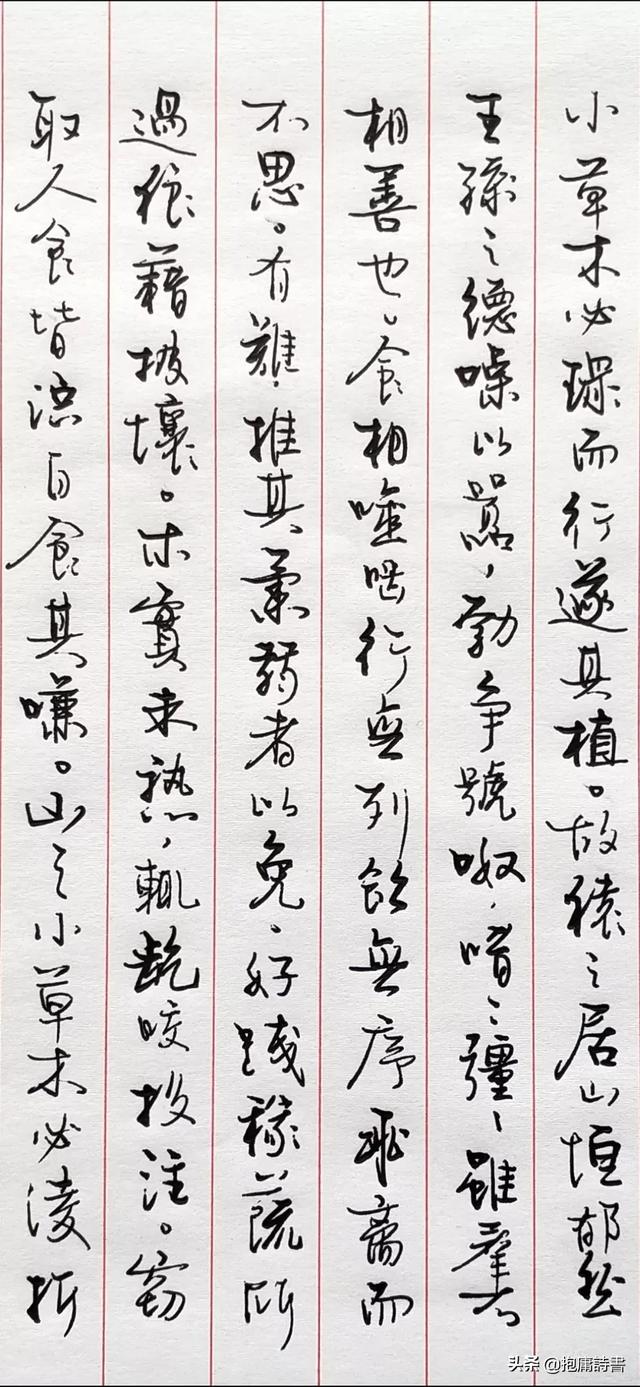 小草木必環而行遂其植。故猿之居山恒郁然
王孫之德噪以囂,勃争號呶,唶〻彊〻雖羣不
相善也。食相噬齧行無列飲無序乖離而
不思。有難,推其柔弱者以免,好踐稼蔬所
過狼藉披壤。木實未熟,輒齕咬投注。竊
取人食皆自食其嗛。山之小草木必凌折
头条 @抱庸詩書